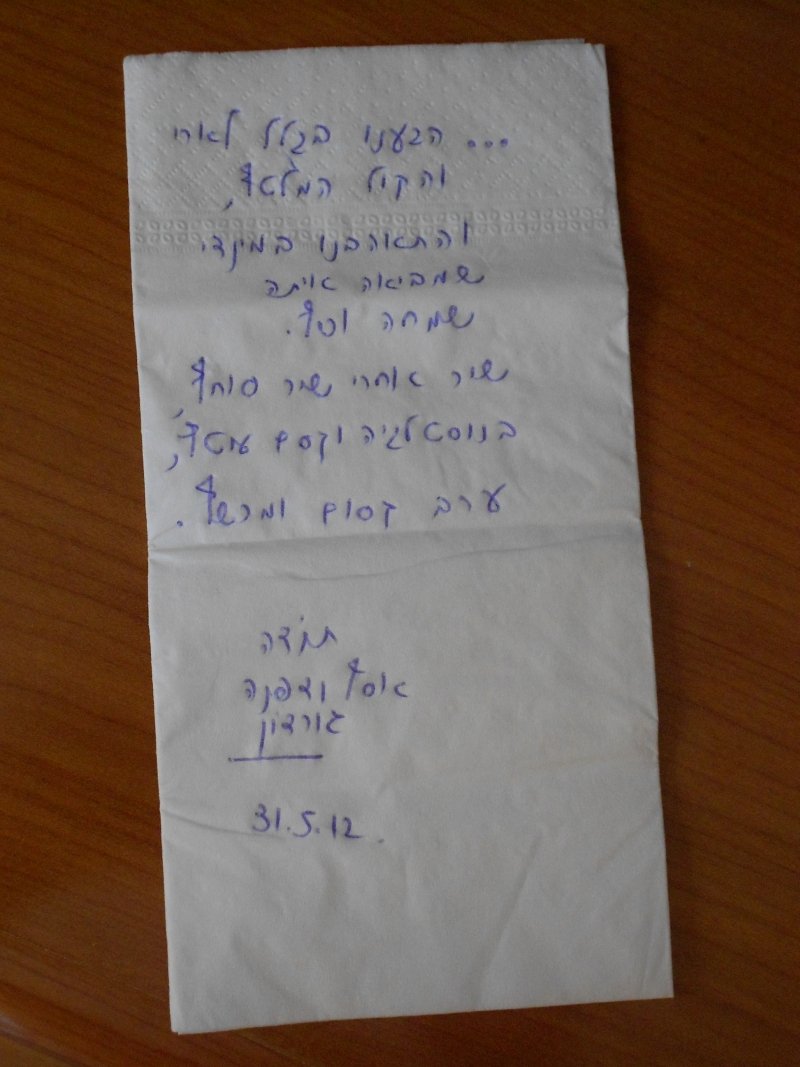 ... הגענו בגלל לאורי
והקול המלטף,
והתאהבנו במינדי
שמביאה איתה
שמחה וכיף.
שיר אחרי שיר סוחף,
בנוסטלגיה וקסם עוטף,
ערב קסום ומרשף.
תודה
אסף ודפנה
גורדון
31.5.12